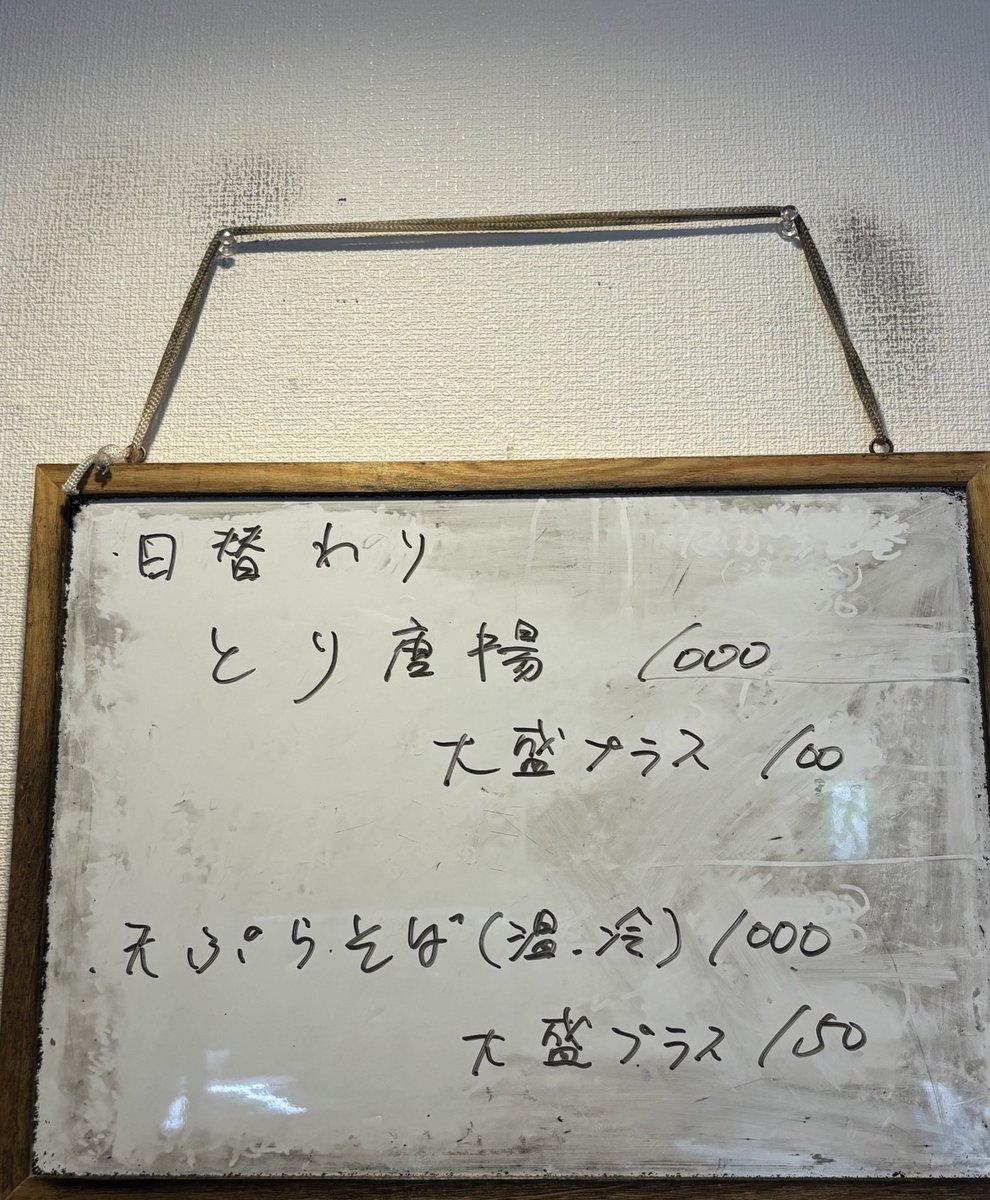 ・日替わり
とり唐揚 1000
大盛プラス 100
・天ぷらそば(温・冷) 1000
大盛プラス 150